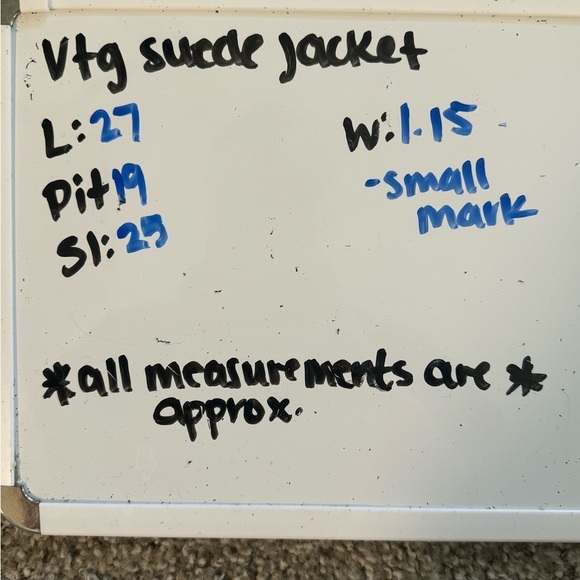 Vtg suede jacket
L:27
W:1.15
Pit 19
-small
mark
Sl:25
*all measurements are *
approx.